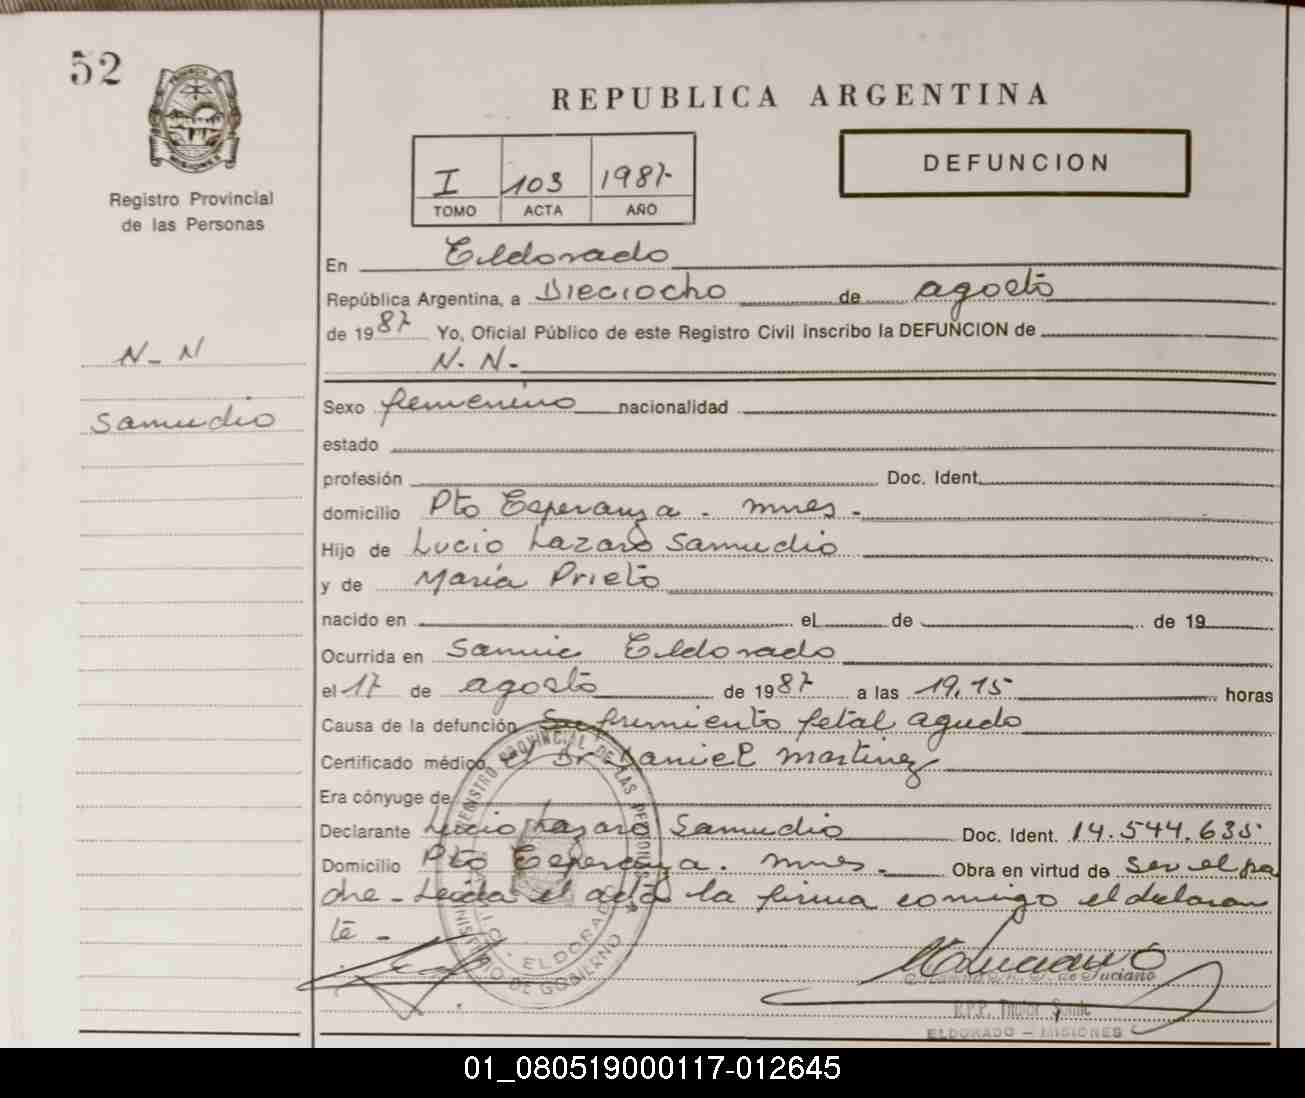 52
REPUBLICA ARGENTINA
MISIONES
DEFUNCION
I 103 1987
TOMO ACTA AÑO
Registro Provincial
de las Personas
En Eldorado
República Argentina, a Dieciocho de agosto
de 1987 Yo, Oficial Público de este Registro Civil inscribo la DEFUNCION de
N-N
N. N.-
Samudio
Sexo femenino nacionalidad
estado
profesión Doc. Ident.
domicilio Pto Esperanza. mnes.
Hijo de Lucio Lazaro Samudio
y de Maria Prieto
nacido en el de de 19
Ocurrida en Samic Eldorado
el 17 de agosto de 1987 a las 19,15 horas
Causa de la defunción Sufrimiento fetal agudo
Certificado médico el Dr Daniel Martinez
Era cónyuge de
Declarante Lucio Lazaro Samudio Doc. Ident. 14.544.635.
Domicilio Pto Esperanza. mnes. Obra en virtud de ser el pa
dre - Leida el acta la firma comigo el declaran
te -
REGISTRO PROVINCIAL DE LAS PERSONAS
ELDORADO
MINISTERIO DE GOBIERNO
de Luciano
ELDORADO - MISIONES
01_080519000117-012645